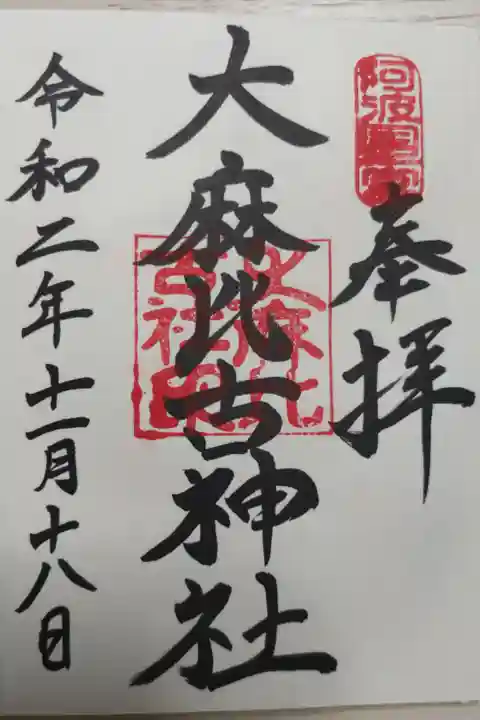 阿波国一宮
奉拝
大麻比古神社
大麻比古社印
令和二年十一月十八日